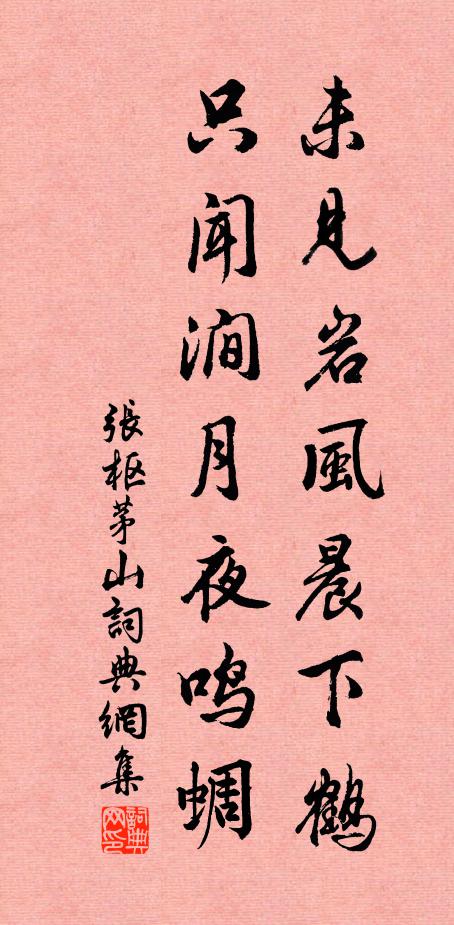 未見岩風晨下鶴
只闻澗月夜鸣蜩
張樞茅山詞典網集
詞典网印